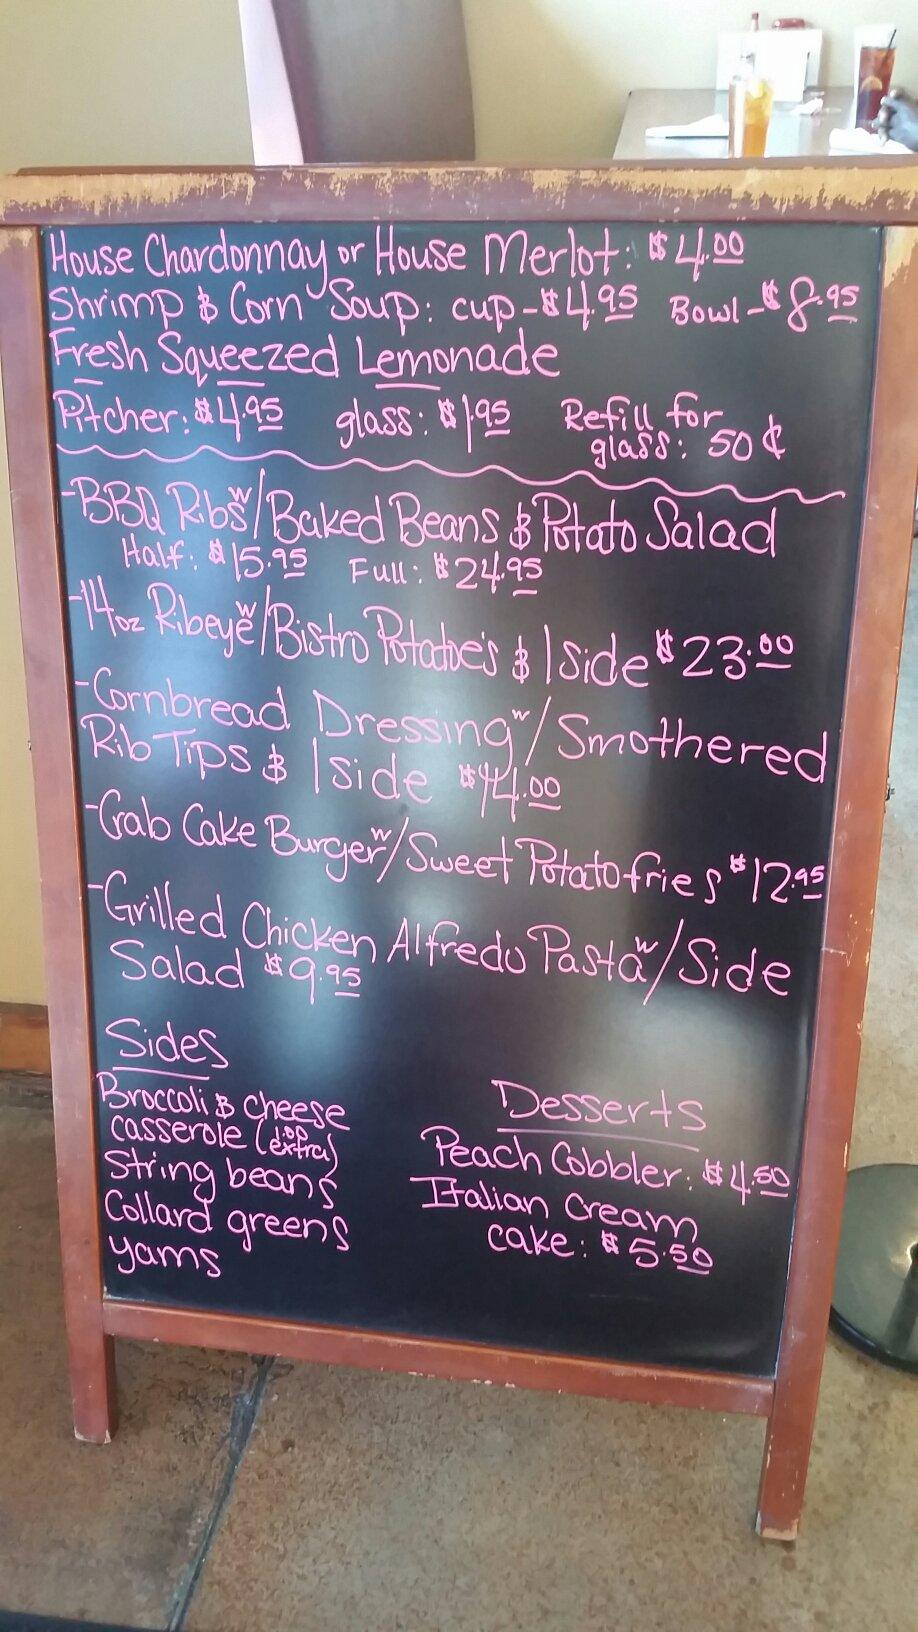 House Chardonnay or House Merlot: $4.00
Shrimp & Corn Soup: cup-$4.95 Bowl-$8.95
Fresh Squeezed Lemonade
Pitcher: $4.95 glass: $1.95 Refill for glass: 50¢
-BBQ Ribs w/Baked Beans & Potato Salad
Half: $15.95 Full: $24.95
-14oz Ribeye w/Bistro Potatoe's & 1 side $23.00
-Cornbread Dressing w/Smothered
Rib Tips & 1 side $14.00
-Crab Cake Burger w/Sweet Potato fries $12.95
-Grilled Chicken Alfredo Pasta w/Side
Salad $9.95
Sides
Broccoli & cheese
casserole (1.00 extra)
String beans
Collard greens
yams
Desserts
Peach Cobbler: $4.50
Italian Cream
cake: $5.50